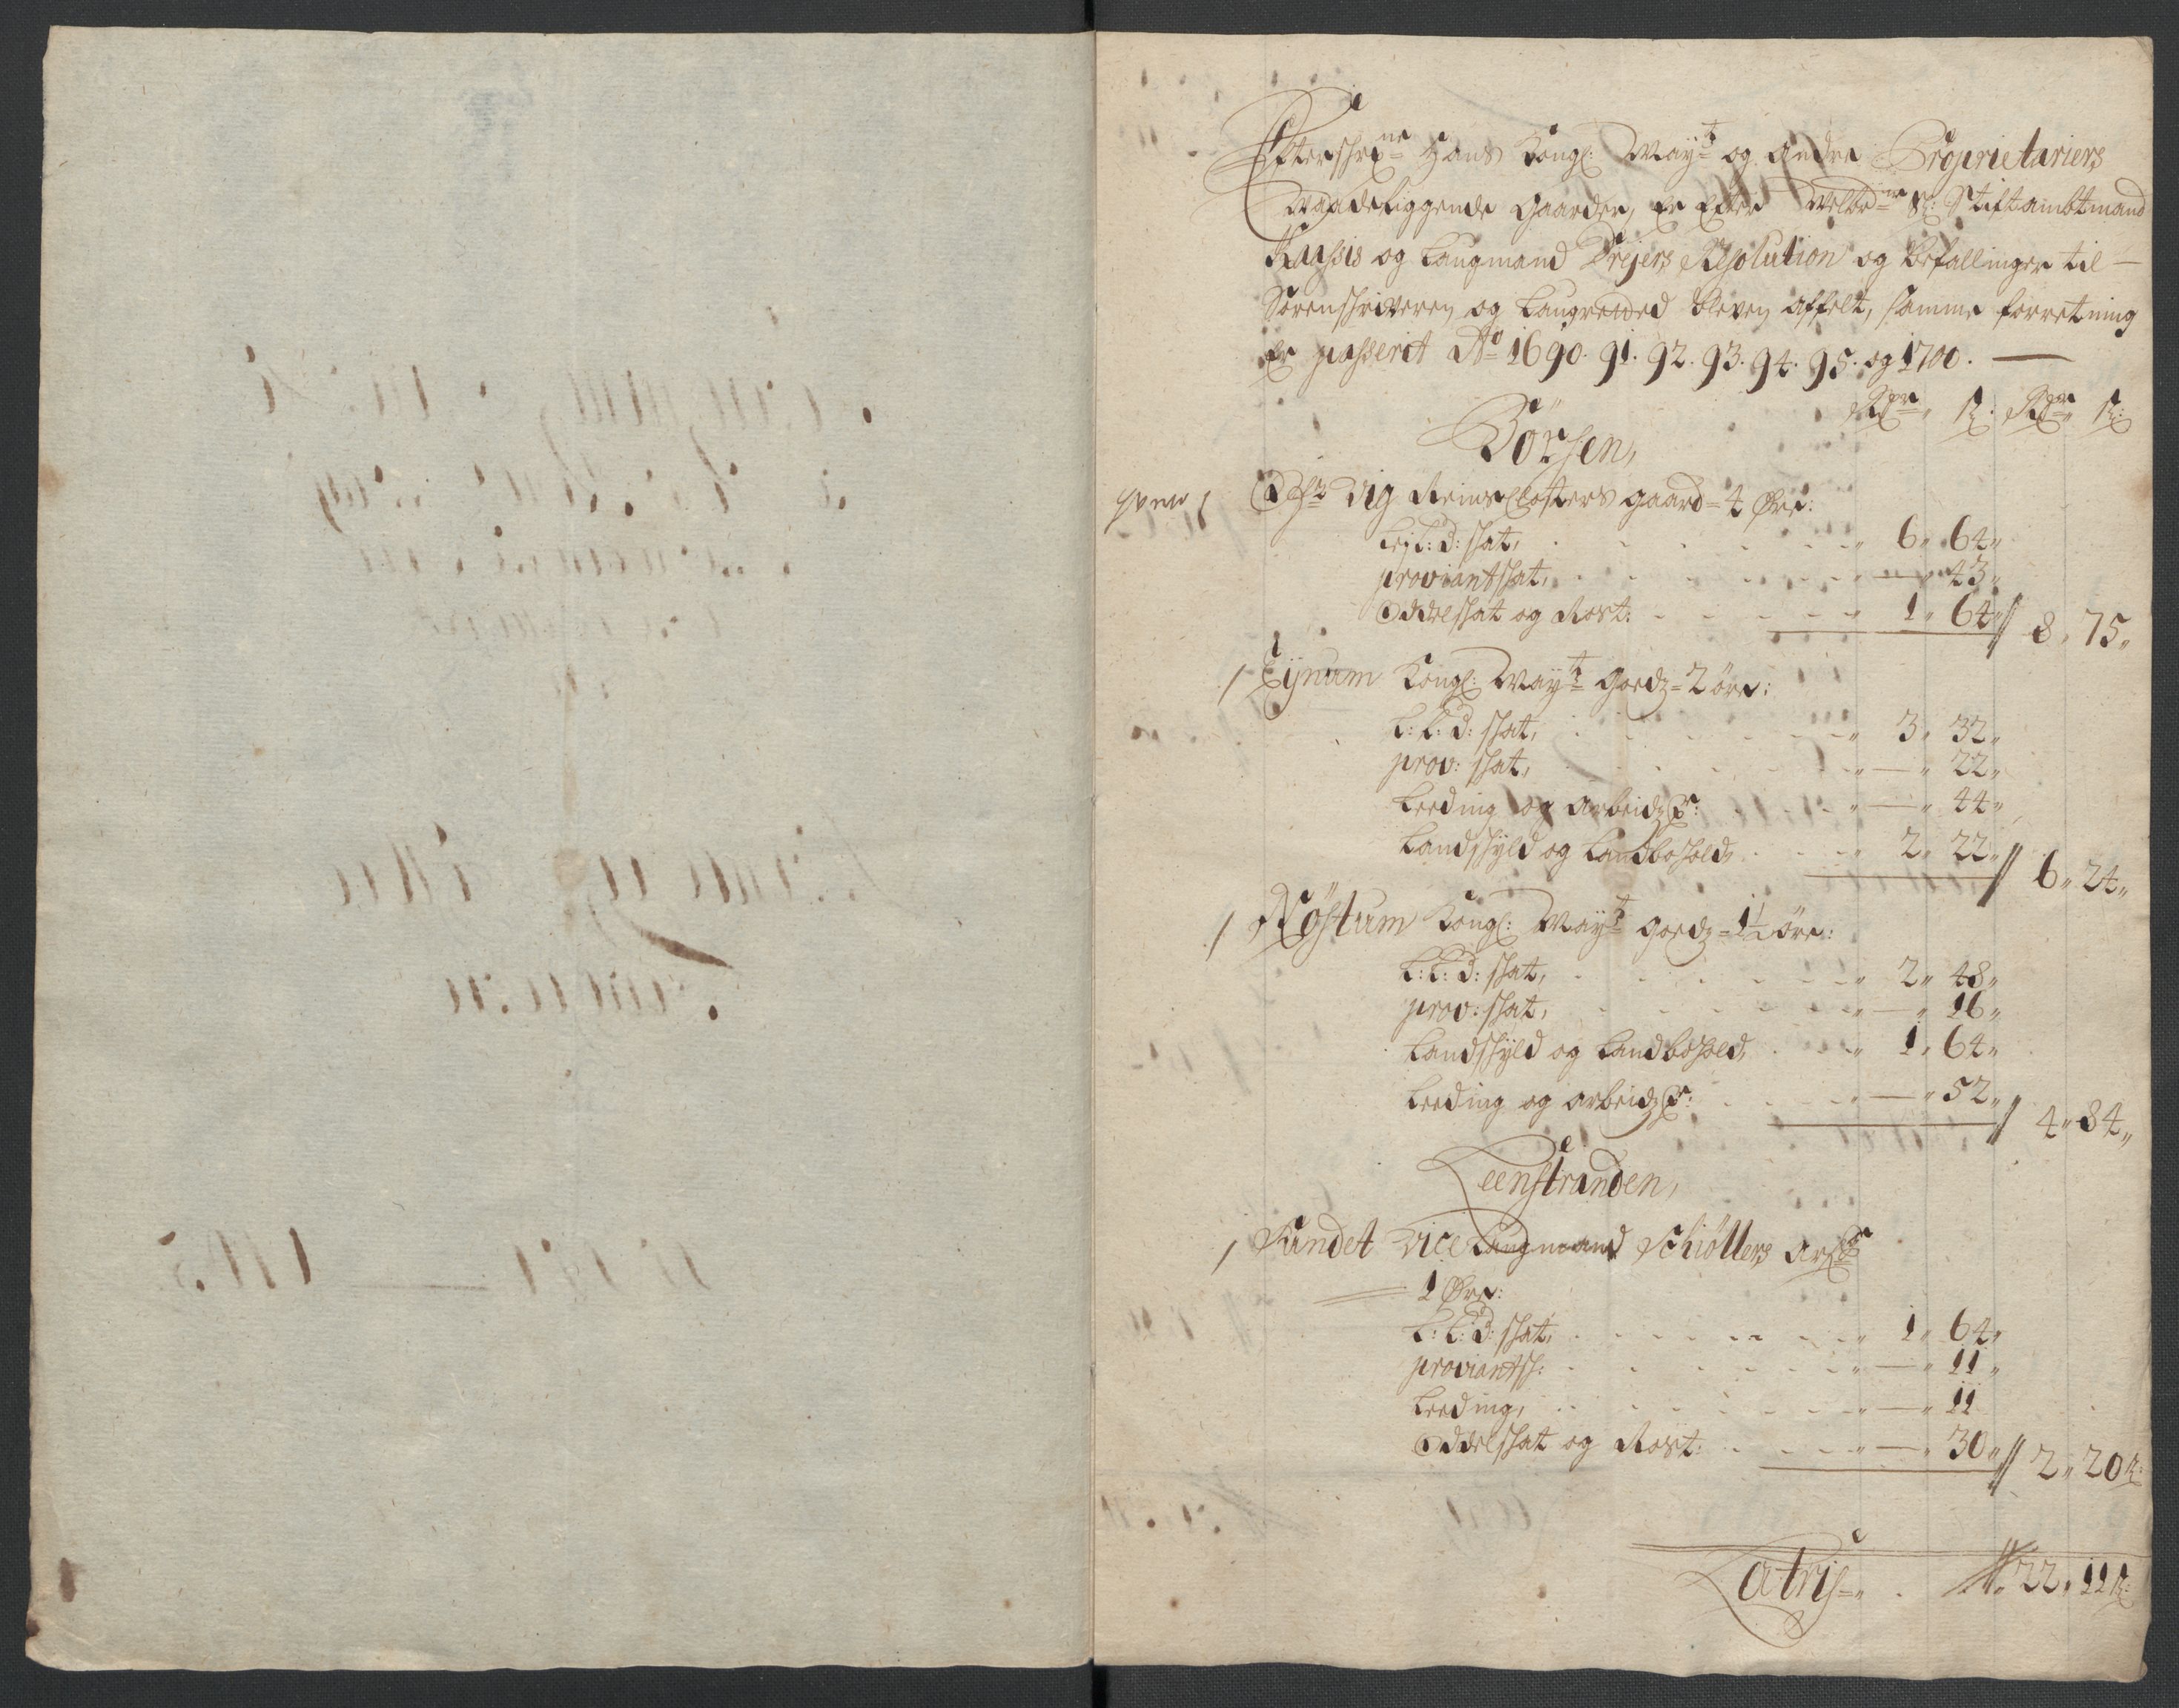 Efterschrne Hans Kongl: Mayts og andre Proprietariers
Waadeliggende gaarder, Er Efter Welbrne Sl: Stiftambtmand
Kaassis og Laugmand Drejers Resolution og befallinger til
Sorenschriveren og Laugretted bleven affelt, samme forretning
Er passerit Ao 1690. 91. 92. 93. 94. 95. og 1700.
Rdr ß: Rdr ß:
Börsen,
Vig Reins Closters gaard = 4 Øre:
Lejl: d: skat, 6 „ 64 „
proviantskat, — „ 43 „
Oddelskat og Rost: 1 „ 64 „ // 8 „ 75 „
/ Eÿnum Kongl: Mayts Goedz = 2 öre:
L: L: d: skat, 3 „ 32 „
prov: skat, — „ 22 „
Leeding og arbeidz P: — „ 44 „
Landskÿld og Landbohold, 2 „ 22 „ // 6 „ 24 „
/ Røstum Kongl: Mayts goedz = 1½ öre:
L: L: d: skat, 2 „ 48 „
prov: skat, — „ 16 „
Landskÿld og Landbohold, 1 „ 64 „
Leeding og arbeidz P: — „ 52 „ // 4 „ 84 „
Leenstranden,
/ Sundet Vice Laugmand Schiøllers
1 Øre:
L: L: d: skat, 1 „ 64 „
proviantsk: — „ 11 „
Leeding, — „ 11
Oddelskat og Rost: — „ 30 „ // 2 „ 20 ß:
Latris „ 22 „ 11 ß: